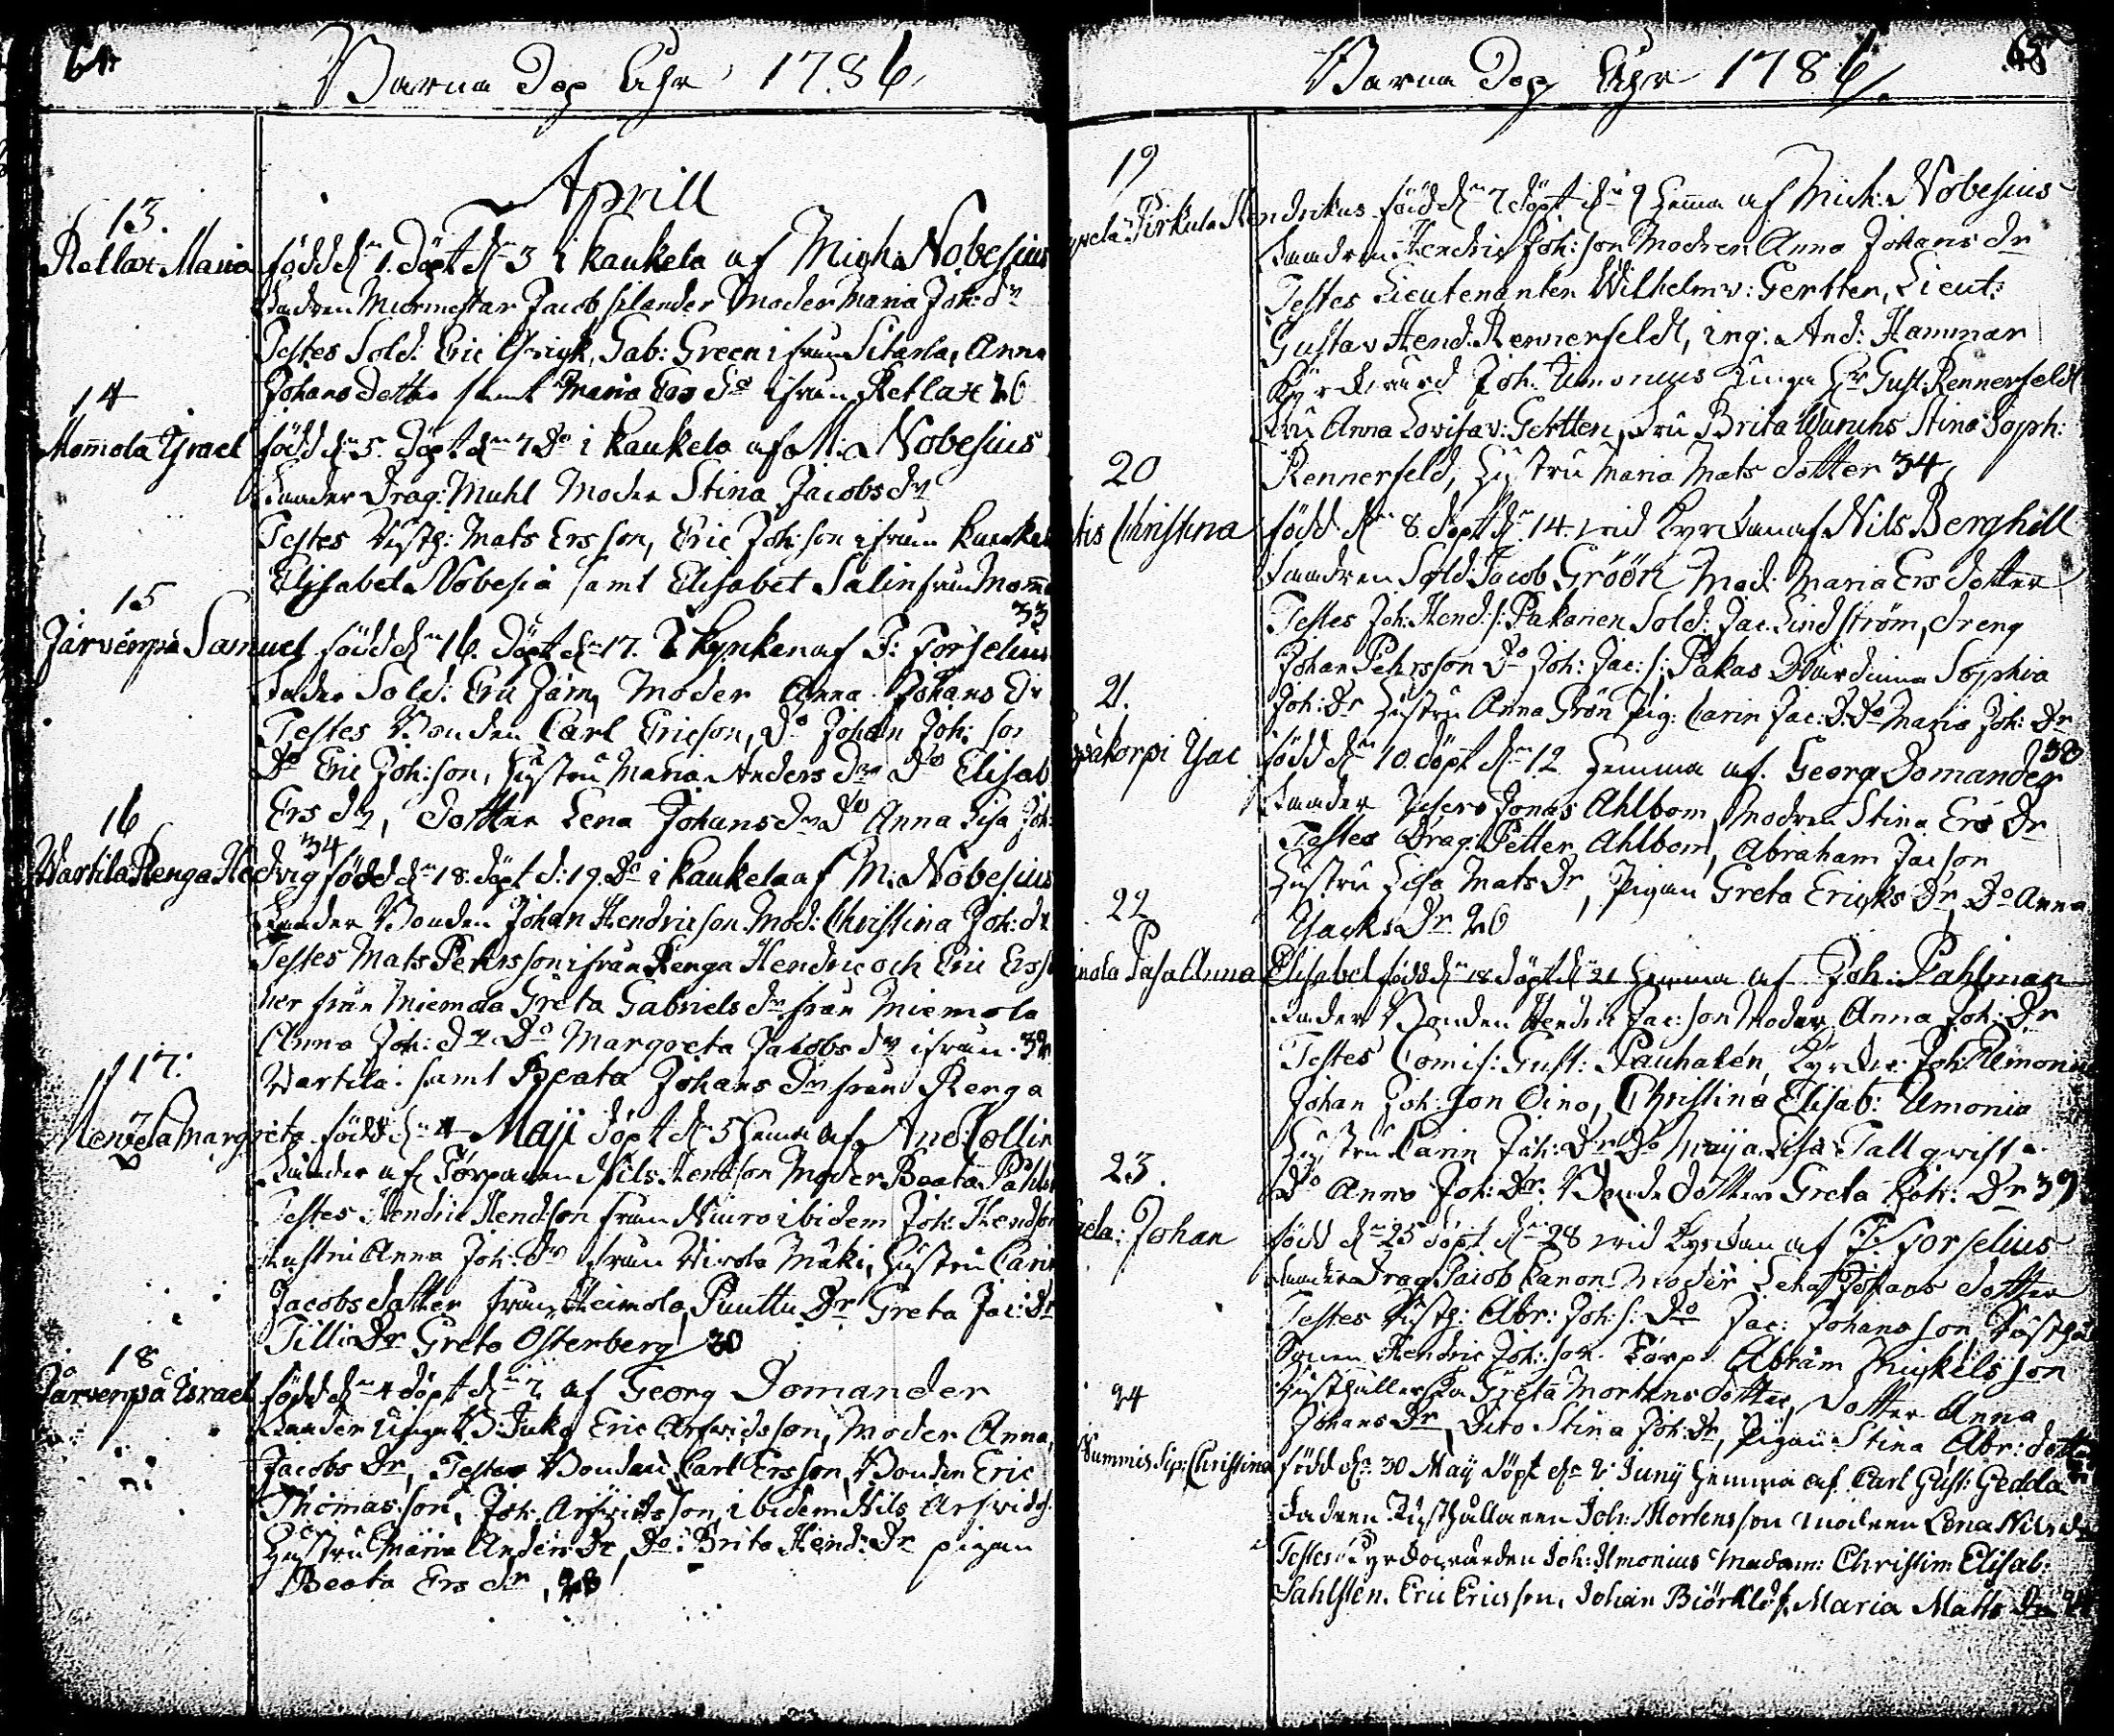 64
Barna Dop Åhr 1786,
Aprill
13.
Retlax Maria född d. 1. döpt d. 3 i Kaukela af Mich: Nobesius
Fadren Murmestar Jacob Silander Moder Maria Joh: dr
Testes Sold: Eric Gab: Green ifrån Sitarla, Anna
Johans dotter samt Maria Ers do ifrån Retlax 26
14
Mommola Israel född d. 5. döpt d. 7 Do i Kaukela af M: Nobesius
Fader Drag: Muhl Moder Stina Jacobs dr
Testes Rusth: Mats Ersson, Eric Joh: son ifrån Kauke
Elisabet Nobesia samt Elisabet Salin från Mom
33
15
Järvenpä Samuel född d. 16. döpt d. 17. Kynken af F: Forselius
Fader Sold: Eric Järn Moder Anna Johans dr
Testes Bonden Carl Ericson, Do Johan Joh: son
Do Eric Joh: son, Hustru Maria Anders dr Do Elisab
Ers dr, dotter Lena Johans dr Do Anna Lisa Joh:
34
16
Wartila Renga Hedvig född d. 18. döpt d. 19. Do i Kaukela af M: Nobesius
Fader Bonden Johan Hendricson Mod: Christina Joh: dr
Testes Mats Pehrsson ifrån Renga Hendric och Eric Erss
ner från Miemola Greta Gabriels dr från Miemola
Anna Joh: dr Do Margreta Jacobs dr ifrån 32
Wartila samt Beata Johans dr från Renga
17.
Menzela Margreta född d. 4 Maji döpt d. 5 hemma af And: Collin
Fader af Torparen Nils Hendson Moder Beata Påhls
Testes Hendric Hendson från Niuro ibidem Joh: Hendson
Hustru Anna Joh: dr från Wirola Mäki, Hustru Carin
Jacobs dotter från Heimola, Puuttu Dr Greta Jac: Dr
Tilli Dr Greta Österberg 30
18
Järvenpä Israel född d. 4 döpt d. 7 af Georg Domander
Fader unga B: Juko Eric Arfvidsson, Moder Anna
Jacobs Dr, Testes Bonden Carl Ersson, Bonden Eric
Thomas: son, Joh: Arfvidsson, ibidem Nils Arfvids:
Hustru Maria Anders Dr, Do: Brita Hend: Dr pigan
Beata Ers dr, 28
65
Barna Dop Åhr 1786,
19
Pirkula Hendrikus född d. 7 döpt d. 9 hemma af Mich: Nobesius
Faadren Hendric Joh: son Modren Anna Johans dr
Testes Lieutenanten Wilhelm v: Gertten, Lieut:
Gustav Hend: Rennerfeldt, ing: And: Hammar
Kyrckvärd Joh: Umonius unga Hr Gust Rennerfeldt
Fru Anna Lovisa v: Gertten, Fru Brita Stina Soph:
Rennerfeld, Hustru Maria Mats dotter 34
20
tis Christina född d. 8. döpt d. 14. vid Kyrckan af Nils Berghäll
Faadren Sold: Jacob Gröön Mod: Maria Ers dotter
Testes Joh: Hend: s: Pakarien Sold: Jac. Lindström, dreng
Johan Pehrsson Do Joh: Jac: s: Pakas Sophia
Joh: Dr Hustru Anna Grön Pig: Carin Jac: D: Do Maria Joh: Dr
38
21.
päkorpi Isac född d. 10. döpt d. 12 hemma af Georg Domander
Faader Jonas Ahlbom, Modren Stina Ers Dr
Testes Drag: Petter Ahlbom, Abraham Jacson
Hustru Lisa Mats Dr, Pigan Greta Ericks Dr, Do Anna
Isacks Dr. 26
22
inola Pasa Anna Elisabet född d. 18 döpt d. 21 hemma af Joh: Pahlman
Fader Bonden Hendric Jac: son Moder Anna Joh: Dr
Testes Comis: Gust: Pauhalén, Kyrckv: Joh: Umonius
Johan Joh: Son Oino, Christina Elisab: Umonia
Hustru Carin Joh: Dr, Do Maija Lisa Tallqvist
Do Anna Joh: Dr. Bonde dotter Greta Joh: Dr 39
23.
ela: Johan född d. 25 döpt d. 28 vid Kyrckan af F: Forselius
Faader Drag: Jacob Kanon Moder Lena Johans dotter
Testes Rusth: Abr: Joh: s: Do Jac: Johans son, Rusth
Sonen Hendric Joh: son. Torp: Abram Mickelsson
Rusthållerska Greta Mortens dotter, dotter Anna
Johans Dr, Dito Stina Joh: Dr, Pigan Stina Abr: dott
24
Summis Sip: Christina född d. 30 Maij döpt d. 2 Junij hemma af Carl Gust: Gedda
Fadren Rusthållaren Joh: Mortensson Modren Lena Nils dr
Testes: Kyrckovärden Joh: Umonius Madam: Christin: Elisab:
Sahlsten. Eric Ericsson. Johan Biörklöf, Maria Matts Dr 24